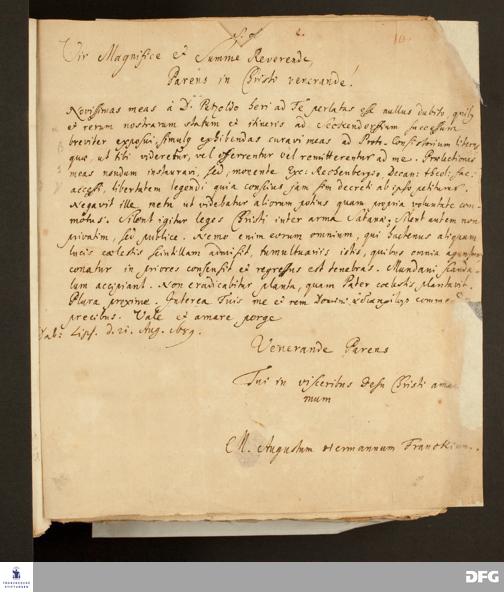 Vir Magnifice et Summe Reverende,
Parens in Christi venerande!
Novissimas meas à D. Petzoldo heri ad Te perlatas esse nullus dubito, quibus
et rerum nostrarum statum et itineris ad Seckendorffium successum
breviter exposui. simulque exhibendas curavi meas ad Proto-Consistorium literas
quae, ut tibi videretur, vel offerrentur vel remitterentur ad me. Praelectiones
meas nondum instauravi, sed, monente Exc: Rechenbergio, Decan: theol: fac:
accessi, libertatem legendi quia conscius jam sim decreti ab ipso petiturus.
Negavit ille, metu ut videbatur aliorum potius quam propria voluntate com-
motus. Silent igitur leges Christi inter arma Satanae, silent autem non
privatim, sed publice. Nemo enim eorum omnium, qui hactenus aliquam
lucis coelestis scintillam admisit, tumultuariis istis, quibus omnia aguntur
conatur in priores consensit et regressus est tenebras. Mundani scanda-
lum accipiant. Non eradicabitur planta, quam Pater coelestis plantavit.
Plura proxime. Interea Tuis me et rem Domini
precibus. Vale et amare perge
Dab: Lips. d. 21. Aug. 1689.
Venerande Parens
Tui in visceribus Jesu Christi aman
mum
M. Augustum Hermannum Franckium.
FRANCKESCHE
STIFTUNGEN
DFG